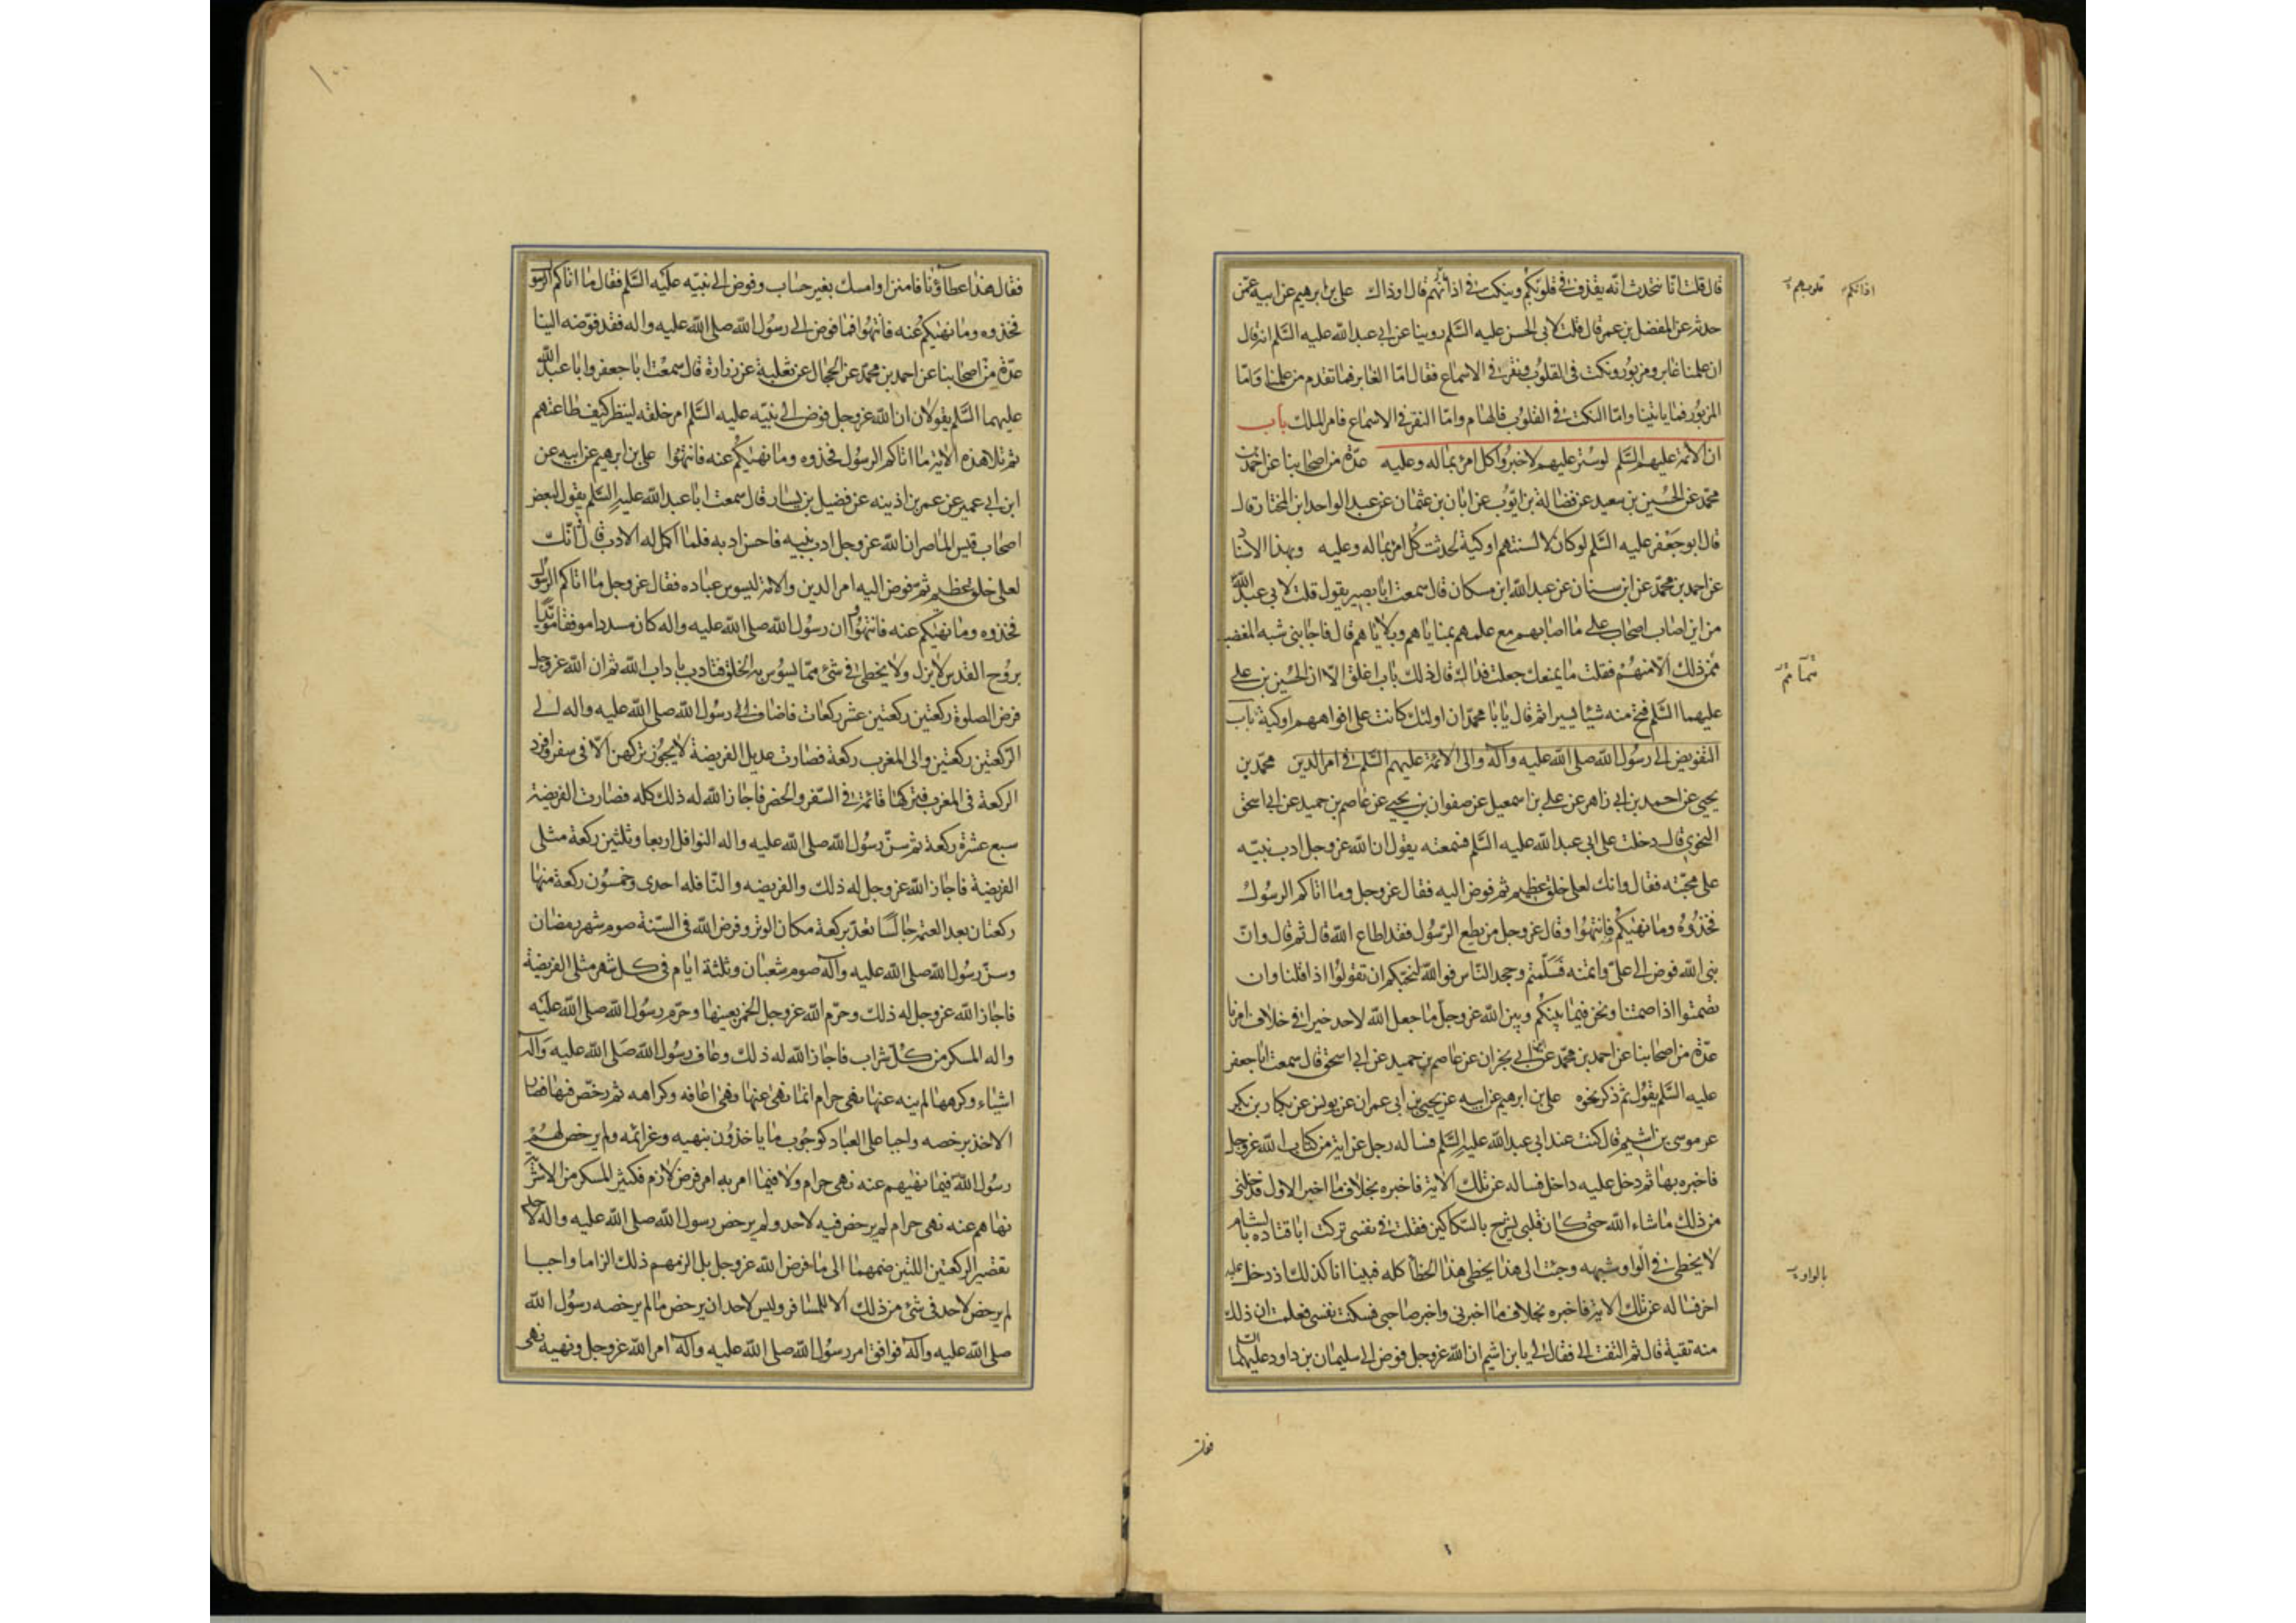 قال قلت انا نتحدث انه يقذف في قلوبكم وينكت في اذانهم قال اوذاك علي بن ابرهيم عن ابيه عمن
اذانكم قلوبهم
حدثه عن المفضل بن عمر قال قلت لابي الحسن عليه السلم روينا عن ابي عبد الله عليه السلم انه قال
ان علمنا غابر ومزبور ونكت في القلوب ونقر في الاسماع فقال اما الغابر فما تقدم من علمنا واما
المزبور فما ياتينا واما النكت في القلوب فالهام واما النقر في الاسماع فامر الملك باب
ان الائمة عليهم السلم لو ستر عليهم لاخبروا كل امرئ بماله وعليه عدة من اصحابنا عن احمد بن
محمد عن الحسين بن سعيد عن فضالة بن ايوب عن ابان بن عثمان عن عبد الواحد ابن المختار قال
قال ابو جعفر عليه السلم لو كان لالسنتهم اوكية لحدثت كل امرئ بماله وعليه وبهذا الاسناد
عن احمد بن محمد عن ابن سنان عن عبد الله ابن مسكان قال سمعت ابا بصير يقول قلت لابي عبد الله
من اين اصاب اصحاب علي ما اصابهم مع علمهم بمناياهم وبلاياهم قال فاجابني شبه المغضب
ممن ذلك الا منهم فقلت ما يمنعك جعلت فداك قال ذلك باب اغلق الا ان الحسين بن علي
عليهما السلم فتح منه شيئا يسيرا ثم قال يا با محمد ان اولئك كانت على افواههم اوكية باب
التفويض الى رسول الله صلى الله عليه واله والى الائمة عليهم السلم في امر الدين محمد بن
يحيى عن احمد بن ابي زاهر عن علي بن اسمعيل عن صفوان بن يحيى عن عاصم بن حميد عن ابي اسحق
النحوي قال دخلت على ابي عبد الله عليه السلم فسمعته يقول ان الله عز وجل ادب نبيه
على محبته فقال وانك لعلى خلق عظيم ثم فوض اليه فقال عز وجل وما اتاكم الرسول
فخذوه وما نهيكم فانتهوا وقال عز وجل من يطع الرسول فقد اطاع الله قال ثم قال وان
نبي الله فوض الى علي وائتمنه فسلمتم وجحد الناس فوالله لنحبكم ان تقولوا اذا قلنا وان
تصمتوا اذا صمتنا ونحن فيما بينكم وبين الله عز وجل ما جعل الله لاحد خيرا في خلاف امرنا
عدة من اصحابنا عن احمد بن محمد عن ابي نجران عن عاصم بن حميد عن ابي اسحق قال سمعت ابا جعفر
عليه السلم يقول ثم ذكر نحوه علي بن ابرهيم عن ابيه عن يحيى بن ابي عمران عن يونس عن بكار بن بكر
عن موسى بن اشيم قال كنت عند ابي عبد الله عليه السلم فساله رجل عن اية من كتاب الله عز وجل
فاخبره بها ثم دخل عليه داخل فساله عن تلك الاية فاخبره بخلاف ما اخبر الاول فدخلني
من ذلك ما شاء الله حتى كان قلبي يشرح بالسكاكين فقلت في نفسي تركت ابا قتادة بالشام
لا يخطئ في الواو وشبهه وجئت الى هذا يخطئ هذا الخطأ كله فبينا انا كذلك اذ دخل عليه
بالواو
اخر فساله عن تلك الاية فاخبره بخلاف ما اخبرني واخبر صاحبي فسكنت نفسي فعلمت ان ذلك
منه تقية قال ثم التفت الي فقال لي يا بن اشيم ان الله عز وجل فوض الى سليمان بن داود عليهما السلم
فقال
١٠٠
فقال هذا عطاؤنا فامنن او امسك بغير حساب وفوض الى نبيه عليه السلم فقال ما اتاكم الرسول
فخذوه وما نهيكم عنه فانتهوا فما فوض الى رسول الله صلى الله عليه واله فقد فوضه الينا
عدة من اصحابنا عن احمد بن محمد عن الحجال عن ثعلبة عن زرارة قال سمعت ابا جعفر وابا عبد الله
عليهما السلم يقولان ان الله عز وجل فوض الى نبيه عليه السلم امر خلقه لينظر كيف طاعتهم
ثم تلا هذه الاية ما اتاكم الرسول فخذوه وما نهيكم عنه فانتهوا علي بن ابرهيم عن ابيه عن
ابن ابي عمير عن عمر بن اذينه عن فضيل بن يسار قال سمعت ابا عبد الله عليه السلم يقول لبعض
اصحاب قيس الماصر ان الله عز وجل ادب نبيه فاحسن ادبه فلما اكمل له الادب قال انك
لعلى خلق عظيم ثم فوض اليه امر الدين والامة ليسوس عباده فقال عز وجل ما اتاكم الرسول
فخذوه وما نهيكم عنه فانتهوا وان رسول الله صلى الله عليه واله كان مسددا موفقا مؤيدا
بروح القدس لا يزل ولا يخطئ في شئ مما يسوس به الخلق فتادب باداب الله ثم ان الله عز وجل
فرض الصلوة ركعتين ركعتين عشر ركعات فاضاف الى رسول الله صلى الله عليه واله الى
الركعتين ركعتين والى المغرب ركعة فصارت عديل الفريضة لا يجوز تركهن الا في سفر وافرد
الركعة في المغرب فتركها قائمة في السفر والحضر فاجاز الله له ذلك كله فصارت الفريضة
سبع عشرة ركعة ثم سن رسول الله صلى الله عليه واله النوافل اربعا وثلثين ركعة مثلي
الفريضة فاجاز الله عز وجل له ذلك والفريضه والنافله احدى وخمسون ركعة منها
ركعتان بعد العتمة جالسا تعد بركعة مكان الوتر وفرض الله في السنة صوم شهر رمضان
وسن رسول الله صلى الله عليه واله صوم شعبان وثلثة ايام في كل شهر مثلي الفريضة
فاجاز الله عز وجل له ذلك وحرم الله عز وجل الخمر بعينها وحرم رسول الله صلى الله عليه
واله المسكر من كل شراب فاجاز الله له ذلك وعاف رسول الله صلى الله عليه واله
اشياء وكرهها لم ينه عنها نهي حرام انما نهى عنها نهي اعافه وكراهه ثم رخص فيها فصار
الاخذ برخصه واجبا على العباد كوجوب ما ياخذون بنهيه وعزائمه ولم يرخص لهم
رسول الله فيما نهيهم عنه نهي حرام ولا فيما امر به امر فرض لازم فكثير المسكر من الاشربة
نهاهم عنه نهي حرام لم يرخص فيه لاحد ولم يرخص رسول الله صلى الله عليه واله لاحد
تقصير الركعتين اللتين ضمهما الى ما فرض الله عز وجل بل الزمهم ذلك الزاما واجبا
لم يرخص لاحد في شئ من ذلك الا للمسافر وليس لاحد ان يرخص ما لم يرخصه رسول الله
صلى الله عليه واله فوافق امر رسول الله صلى الله عليه واله امر الله عز وجل ونهيه نهي